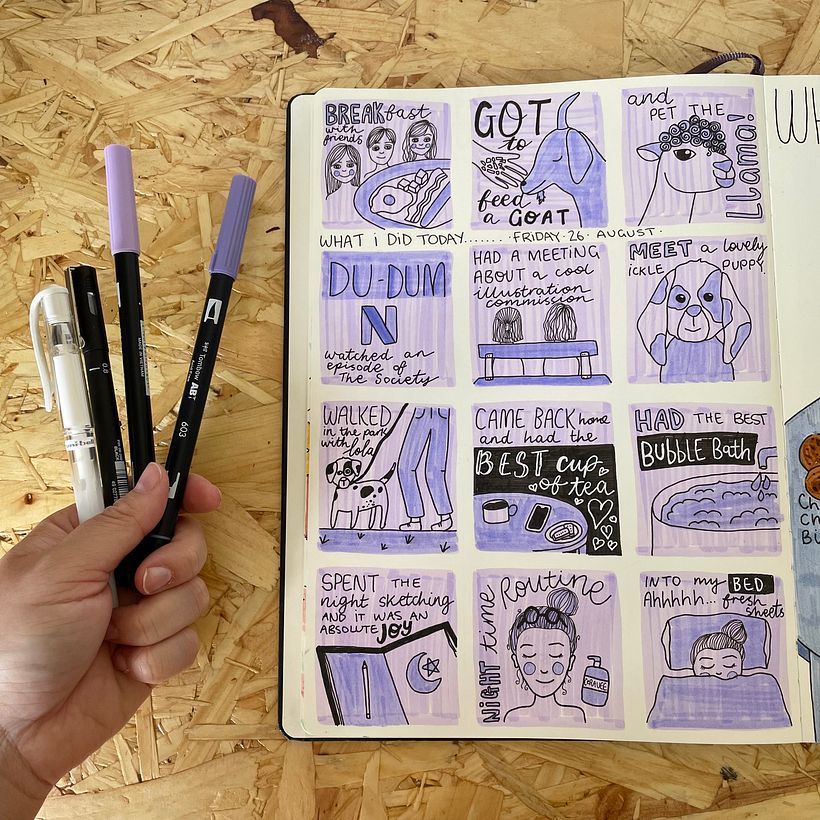 BREAKfast
with
friends
GOT
to
feed
a GOAT
and
PET THE
LLama!
WHAT i DID TODAY....... ·FRIDAY·26· AUGUST·
DU-DUM
N
watched an
episode of
The Society
HAD A MEETING
ABOUT a cool
illustration
commission
MEET a lovely
ickle PUPPY
WALKED
in the park
with lola
CAME BACK home
and had the
BEST cup
of tea
HAD THE BEST
BUBBLE Bath
SPENT THE
night sketching
AND iT WAS AN
ABSOLUTE JOY
NiGHT time Routine
INTO my BED
Ahhhhh... fresh
sheets
WH
Ch
Ch
Bi
Tombow ABT
603
0.8